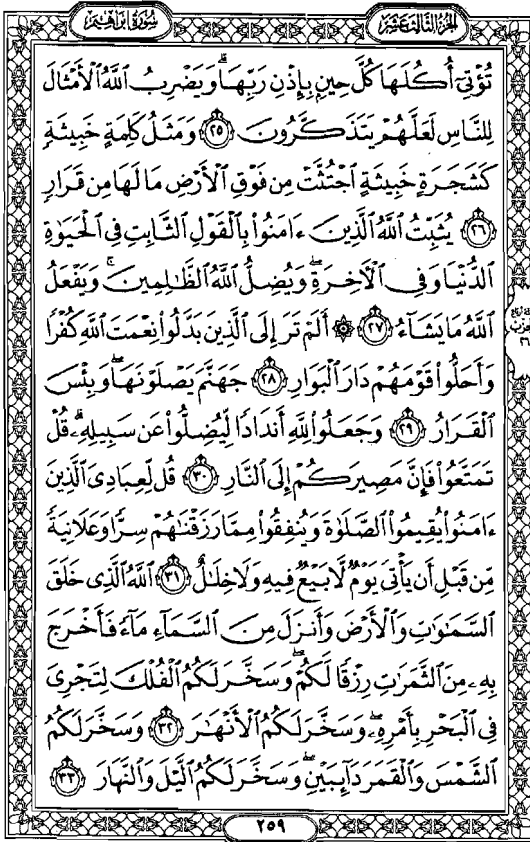 الجزء الثالث عشر
سورة إبراهيم
تُؤْتِىٓ أُكُلَهَا كُلَّ حِينٍۭ بِإِذْنِ رَبِّهَا ۗ وَيَضْرِبُ ٱللَّهُ ٱلْأَمْثَالَ
لِلنَّاسِ لَعَلَّهُمْ يَتَذَكَّرُونَ ٢٥ وَمَثَلُ كَلِمَةٍ خَبِيثَةٍ
كَشَجَرَةٍ خَبِيثَةٍ ٱجْتُثَّتْ مِن فَوْقِ ٱلْأَرْضِ مَا لَهَا مِن قَرَارٍ
٢٦ يُثَبِّتُ ٱللَّهُ ٱلَّذِينَ ءَامَنُوا۟ بِٱلْقَوْلِ ٱلثَّابِتِ فِى ٱلْحَيَوٰةِ
ٱلدُّنْيَا وَفِى ٱلْءَاخِرَةِ ۖ وَيُضِلُّ ٱللَّهُ ٱلظَّٰلِمِينَ ۚ وَيَفْعَلُ
ٱللَّهُ مَا يَشَآءُ ٢٧ ۞ أَلَمْ تَرَ إِلَى ٱلَّذِينَ بَدَّلُوا۟ نِعْمَتَ ٱللَّهِ كُفْرًا
وَأَحَلُّوا۟ قَوْمَهُمْ دَارَ ٱلْبَوَارِ ٢٨ جَهَنَّمَ يَصْلَوْنَهَا ۖ وَبِئْسَ
ٱلْقَرَارُ ٢٩ وَجَعَلُوا۟ لِلَّهِ أَندَادًا لِّيُضِلُّوا۟ عَن سَبِيلِهِۦ ۗ قُلْ
تَمَتَّعُوا۟ فَإِنَّ مَصِيرَكُمْ إِلَى ٱلنَّارِ ٣٠ قُل لِّعِبَادِىَ ٱلَّذِينَ
ءَامَنُوا۟ يُقِيمُوا۟ ٱلصَّلَوٰةَ وَيُنفِقُوا۟ مِمَّا رَزَقْنَٰهُمْ سِرًّا وَعَلَانِيَةً
مِّن قَبْلِ أَن يَأْتِىَ يَوْمٌ لَّا بَيْعٌ فِيهِ وَلَا خِلَٰلٌ ٣١ ٱللَّهُ ٱلَّذِى خَلَقَ
ٱلسَّمَٰوَٰتِ وَٱلْأَرْضَ وَأَنزَلَ مِنَ ٱلسَّمَآءِ مَآءً فَأَخْرَجَ
بِهِۦ مِنَ ٱلثَّمَرَٰتِ رِزْقًا لَّكُمْ ۖ وَسَخَّرَ لَكُمُ ٱلْفُلْكَ لِتَجْرِىَ
فِى ٱلْبَحْرِ بِأَمْرِهِۦ ۖ وَسَخَّرَ لَكُمُ ٱلْأَنْهَٰرَ ٣٢ وَسَخَّرَ لَكُمُ
ٱلشَّمْسَ وَٱلْقَمَرَ دَآئِبَيْنِ ۖ وَسَخَّرَ لَكُمُ ٱلَّيْلَ وَٱلنَّهَارَ ٣٣
٢٥٩